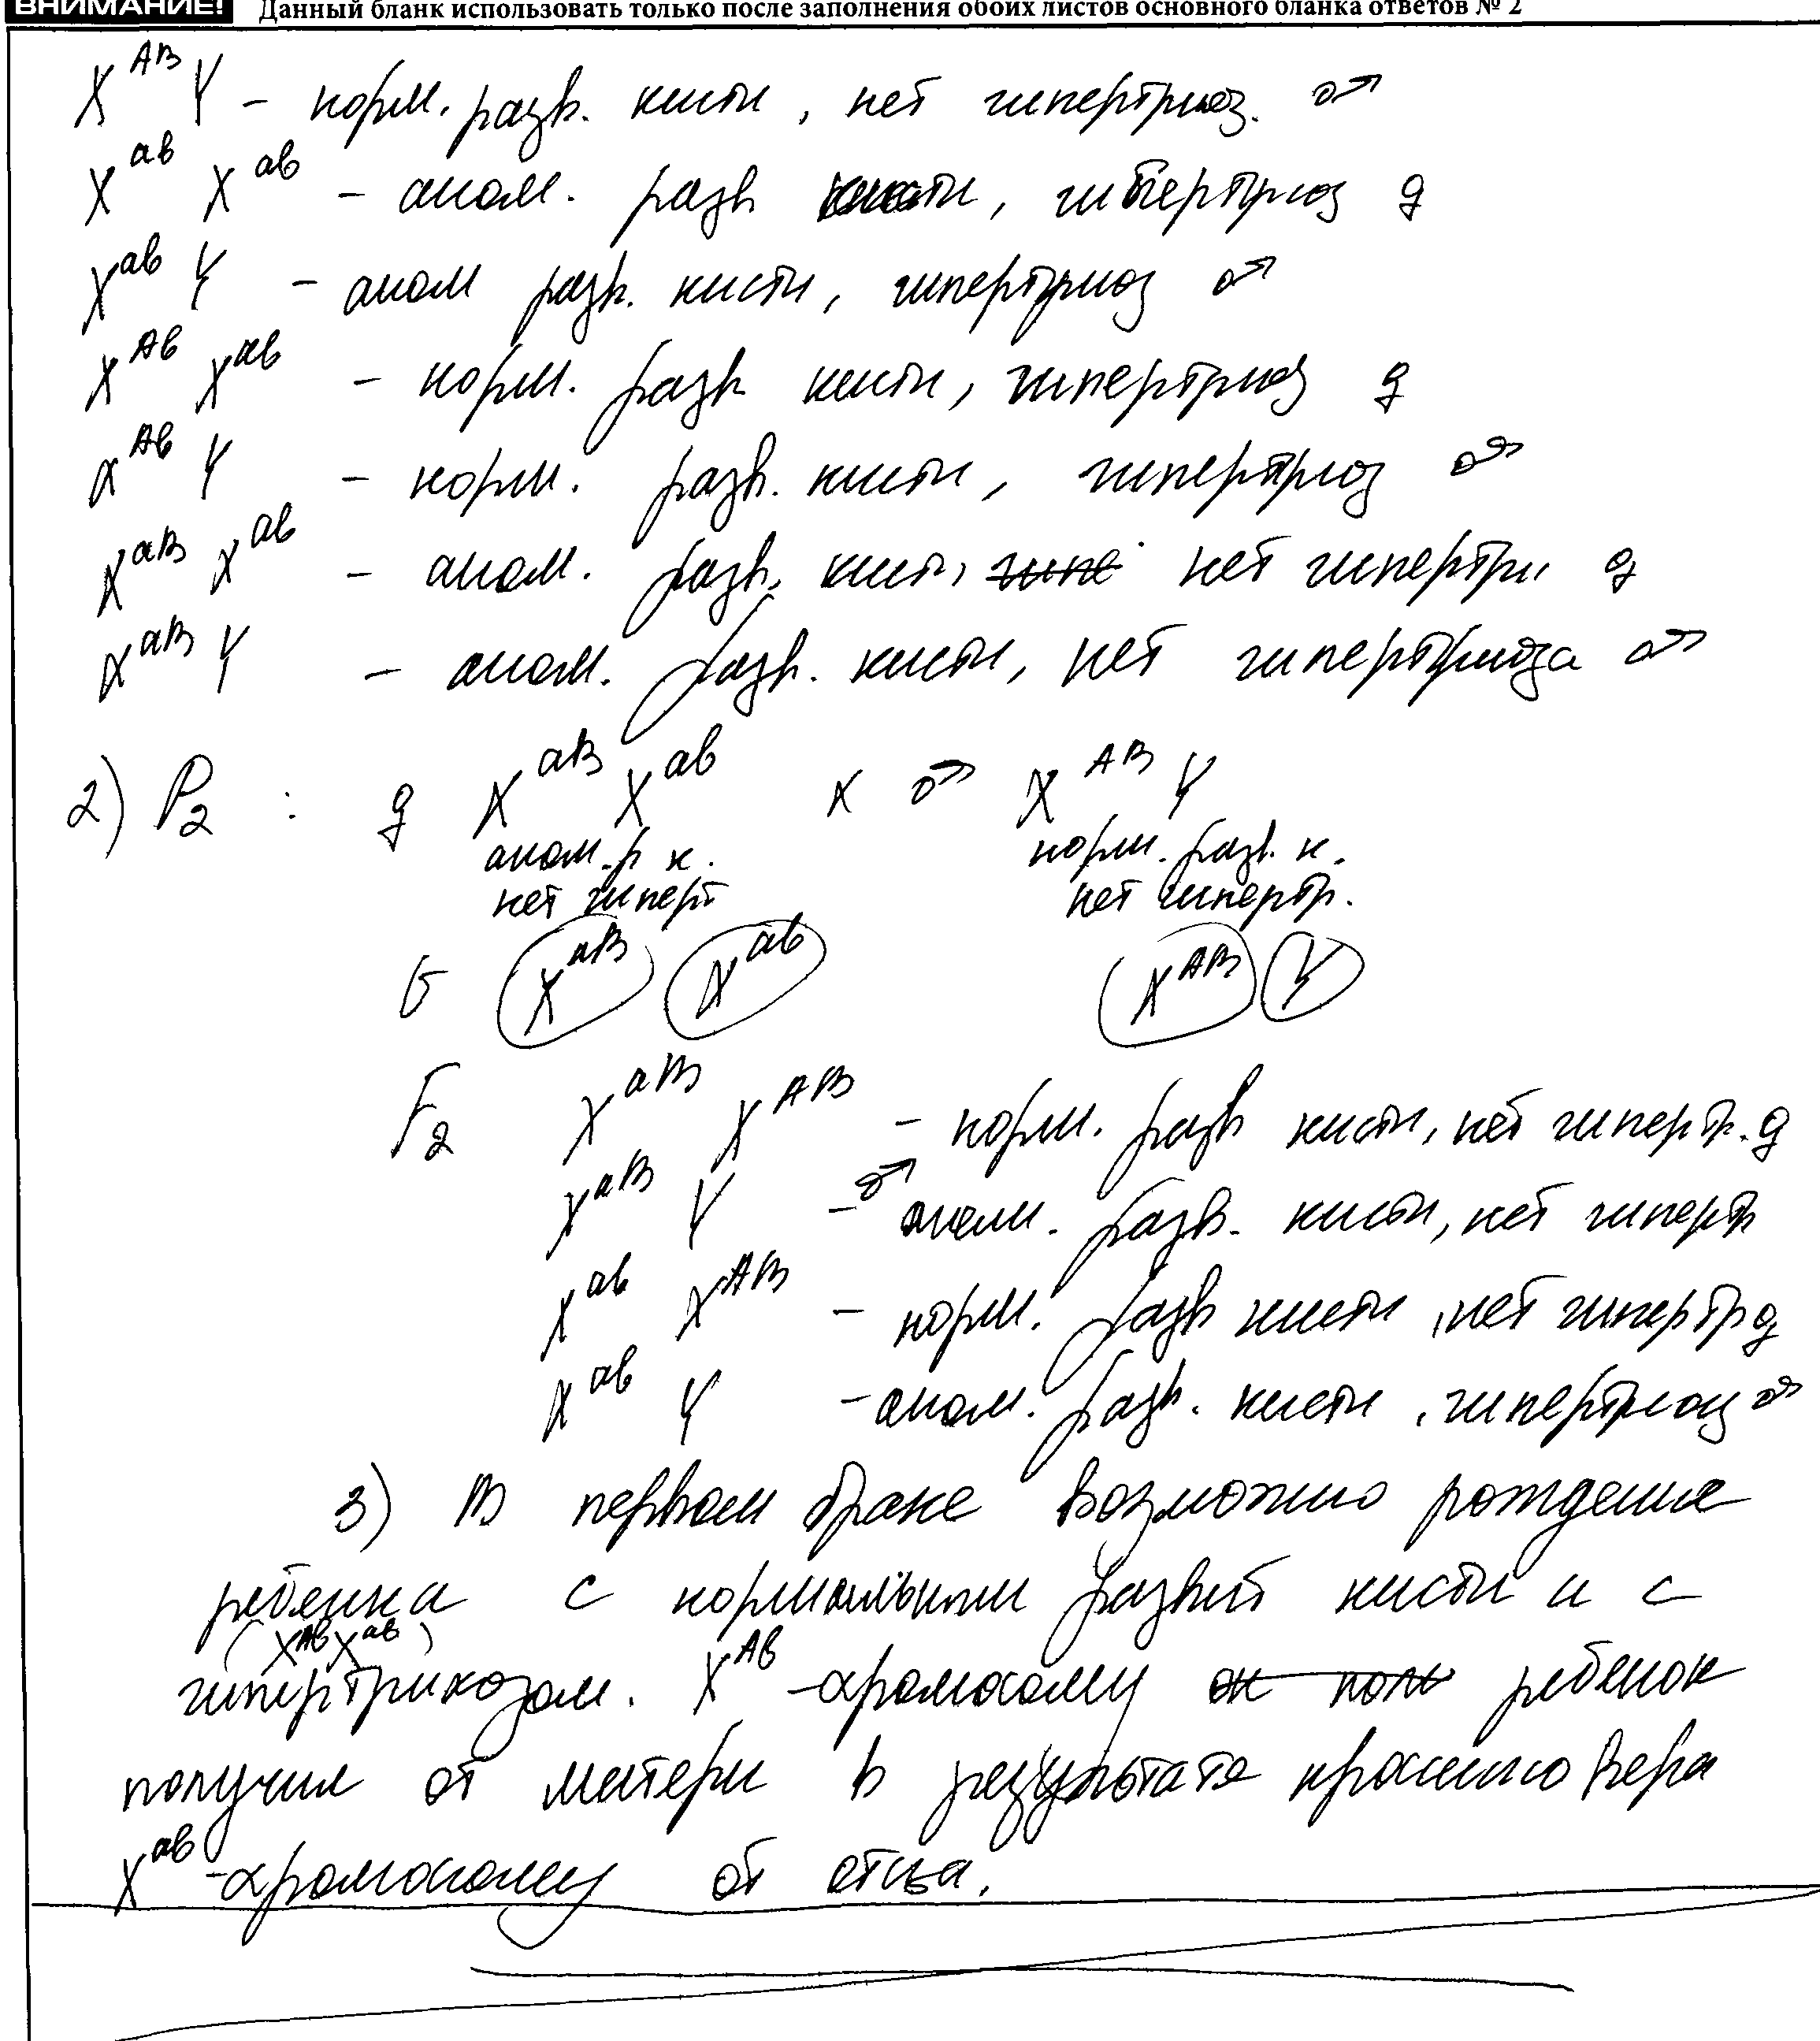 ВНИМАНИЕ! Данный бланк использовать только после заполнения обоих листов основного бланка ответов № 2
X^AB Y – норм. разв. кисти, нет гипертриоз. ♂
X^ab X^ab – аном. разв кисти, гипертриоз ♀
X^ab Y – аном разв. кисти, гипертриоз ♂
X^Ab X^ab – норм. разв кисти, гипертриоз ♀
X^Ab Y – норм. разв. кисти, гипертриоз ♂
X^aB X^ab – аном. разв. кисти, гипе нет гипертри, ♀
X^aB Y – аном. разв. кисти, нет гипертриоза ♂
2) P2 : ♀ X^aB X^ab x ♂ X^AB Y
аном. р к. норм. разв. к.
нет гиперт нет гипертр.
G X^aB X^ab X^AB Y
F2 X^aB X^AB – норм. разв кисти, нет гипертр. ♀
X^aB Y – ♂ аном. разв. кисти, нет гиперт
X^ab X^AB – норм. разв кисти, нет гипертр ♀
X^ab Y – аном. разв. кисти, гипертриоз ♂
3) В первом браке возможно рождение
ребенка с нормальным развит кисти и с
(X^Ab X^ab)
гипертрихозом. X^Ab -хромосому он пол ребенок
получил от матери в результате кроссинговера
X^ab -хромосому от отца.